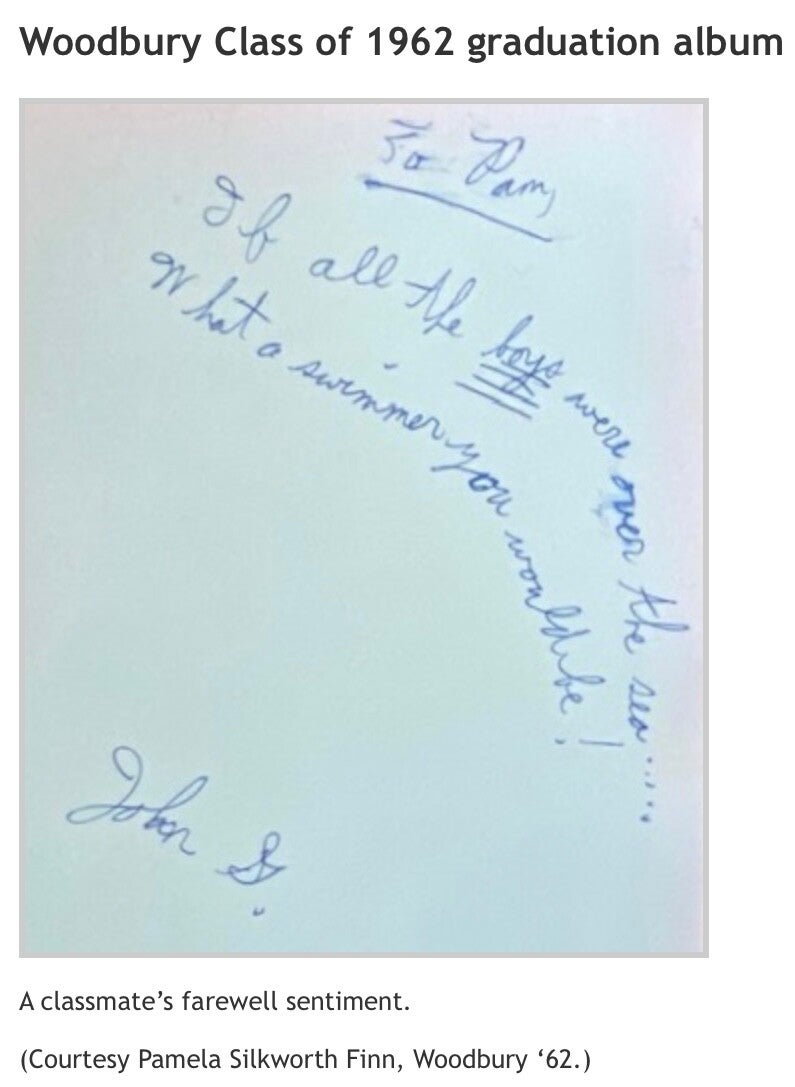 Woodbury Class of 1962 graduation album
To Pam,
If all the boys were over the sea.....
What a swimmer you would be!
John G.
A classmate’s farewell sentiment.
(Courtesy Pamela Silkworth Finn, Woodbury ‘62.)